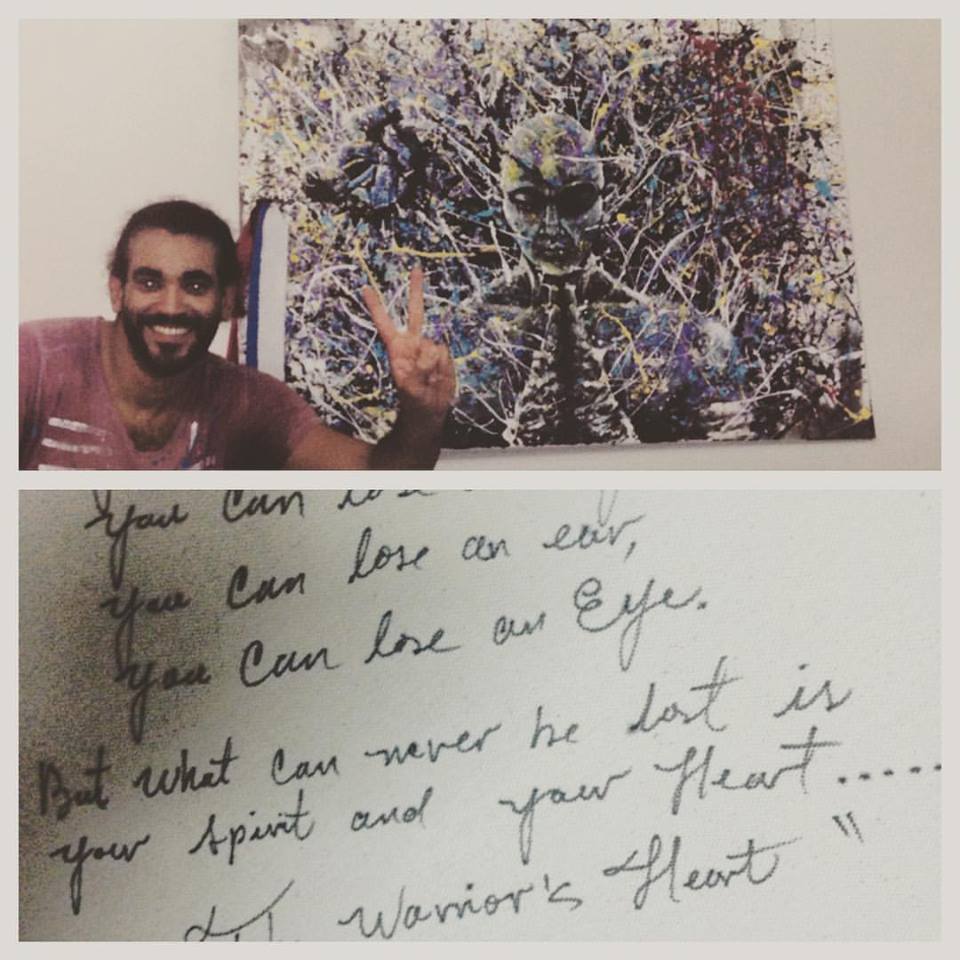 You can lose
you can lose an ear,
you can lose an Eye.
But What can never be lost is
your spirit and your Heart.....
Warrior's Heart"